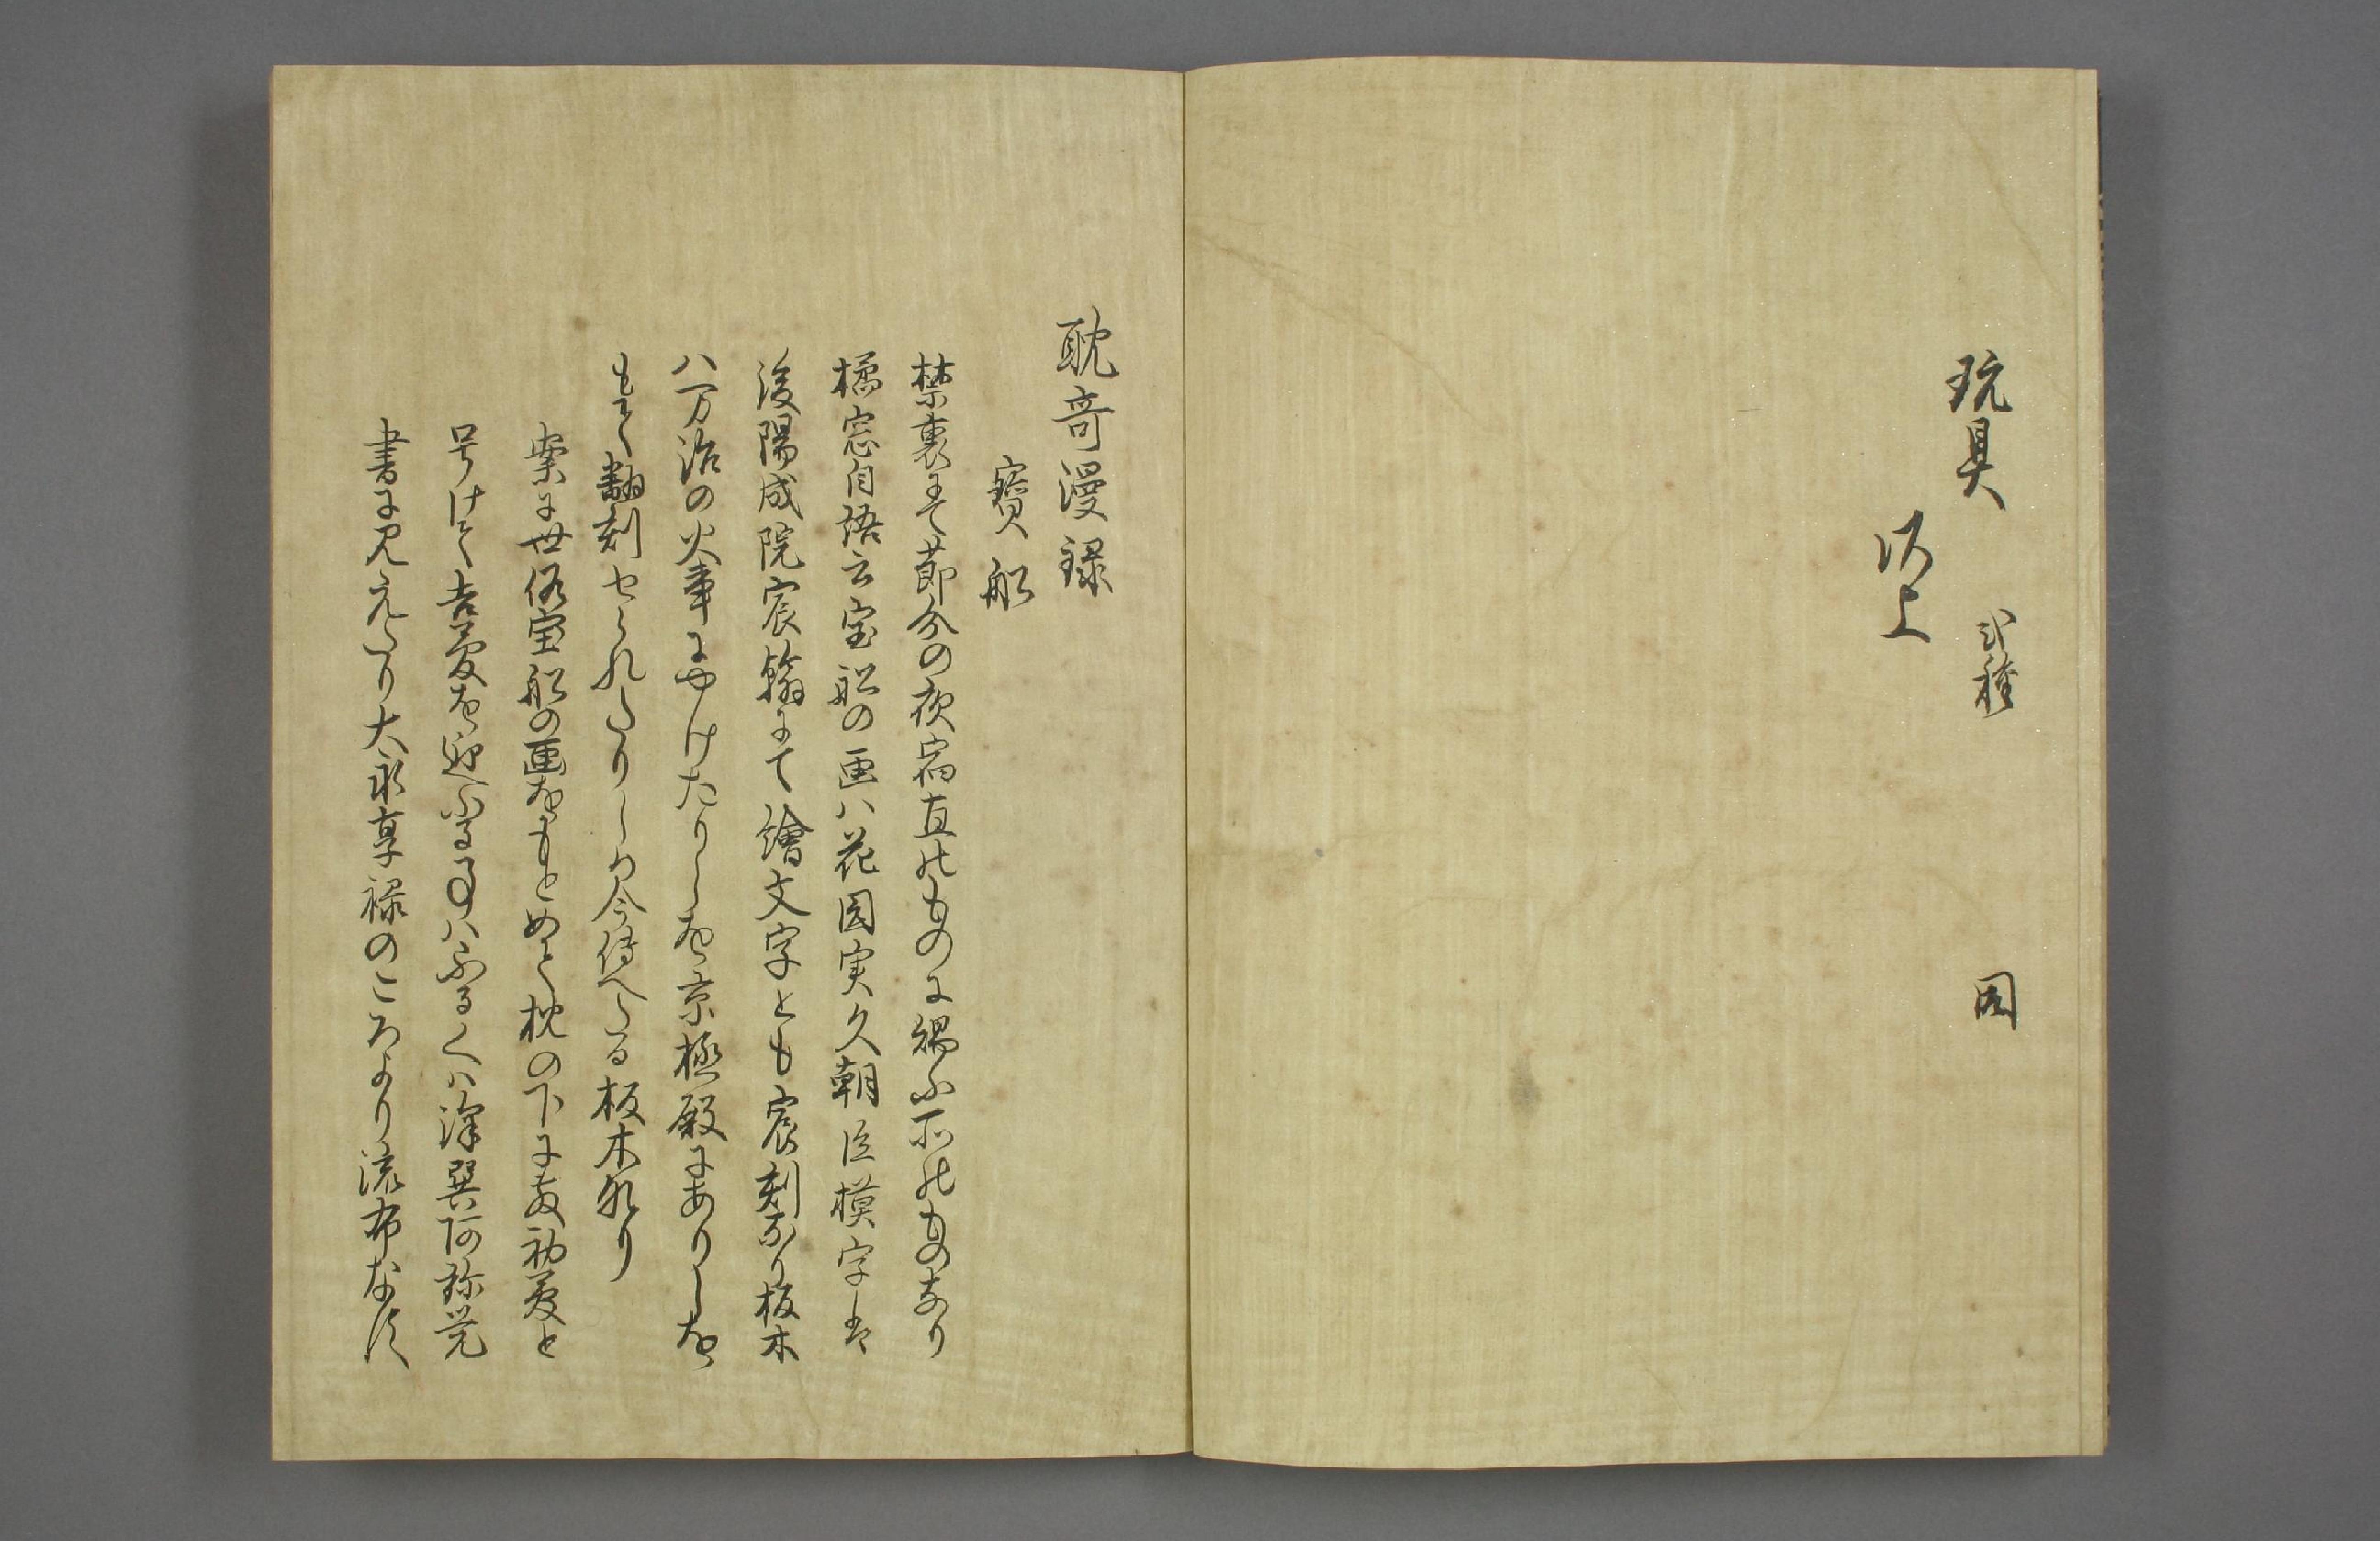 玩具 弐種 同
以上
耽奇漫録
寳舩
禁裏にて節分の夜宿直のものに賜ふ所のものなり
橘窓自語云宝舩の画ハ花園実久朝臣模字は
後陽成院宸翰にて繪文字とも宸刻なり板木
ハ万治の火事にやけたりしを京極殿にありしを
もて翻刻せられたりしか今傳へたる板木なり
案に世俗宝舩の画をもとめて枕の下に敷初夢と
号けて吉夢を迎ふる事ハふるくハ澤巽阿弥覚
書に見えたり大永享禄のころより流布なす